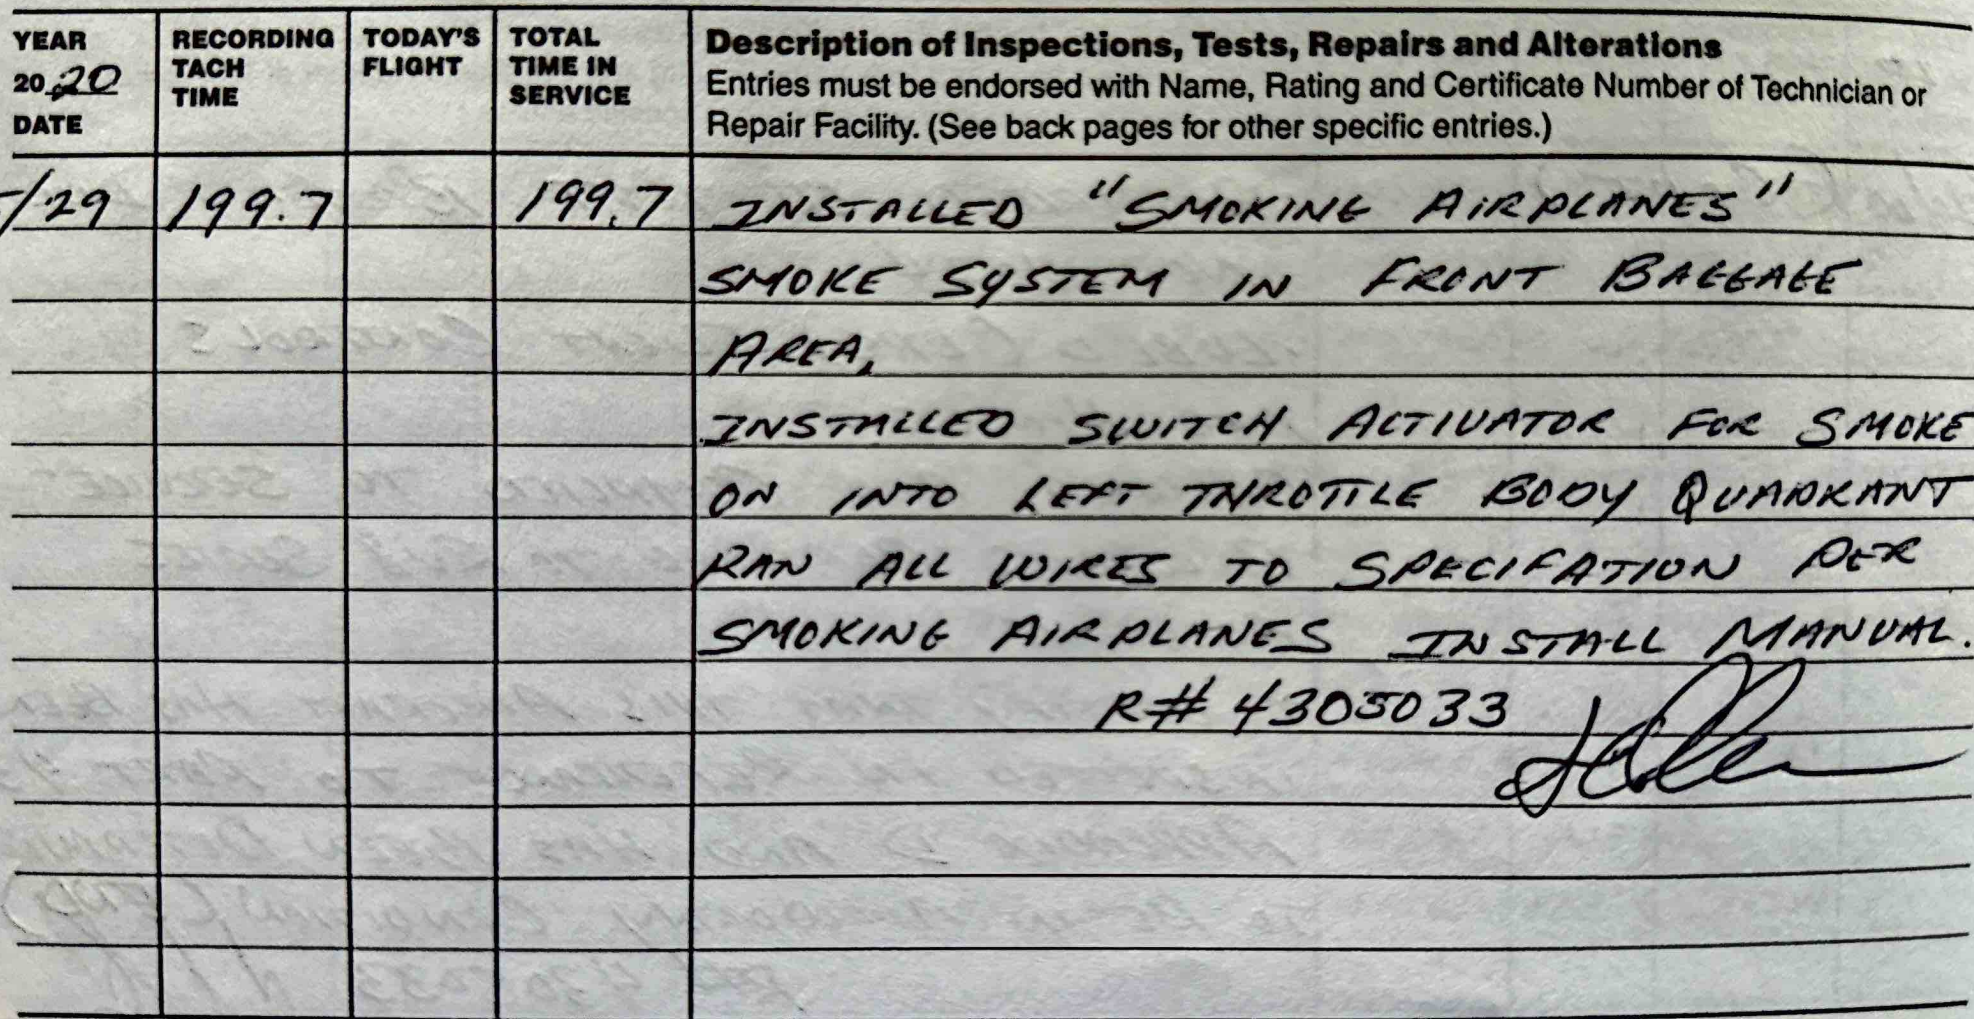 YEAR
2020
DATE
RECORDING
TACH
TIME
TODAY'S
FLIGHT
TOTAL
TIME IN
SERVICE
Description of Inspections, Tests, Repairs and Alterations
Entries must be endorsed with Name, Rating and Certificate Number of Technician or
Repair Facility. (See back pages for other specific entries.)
/29 199.7 199.7 INSTALLED "SMOKING AIRPLANES"
SMOKE SYSTEM IN FRONT BAGGAGE
AREA,
INSTALLED SWITCH ACTIVATOR FOR SMOKE
ON INTO LEFT THROTTLE BODY QUADRANT
RAN ALL WIRES TO SPECIFATION PER
SMOKING AIRPLANES INSTALL MANUAL.
R# 4305033